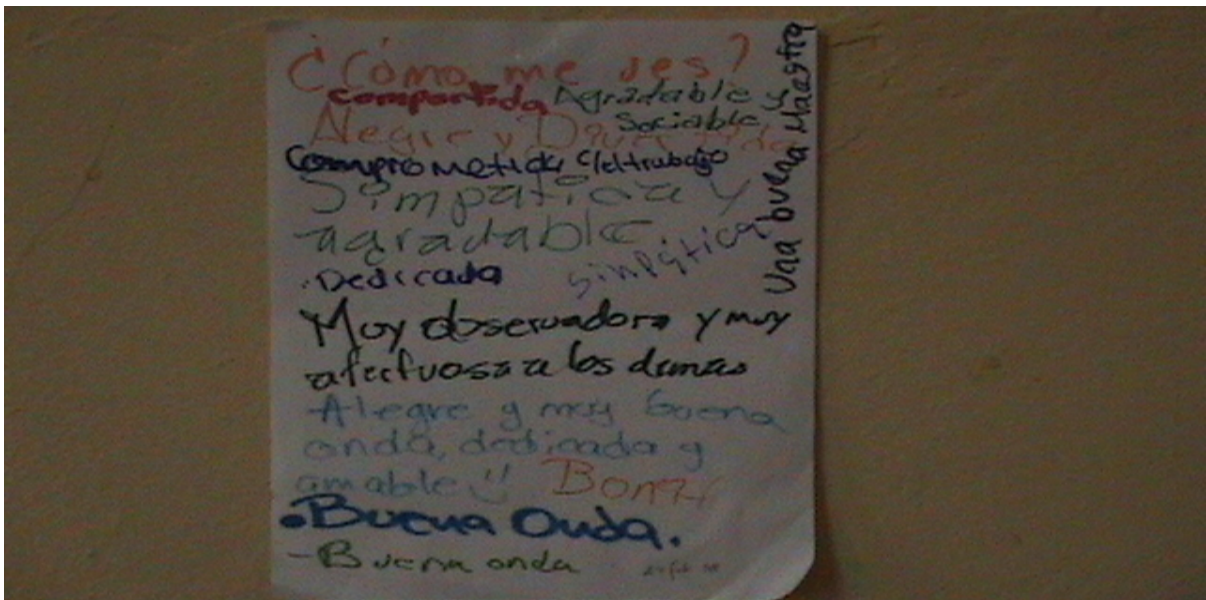 ¿Cómo me ves?
compartida
Agradable y
Sociable
Alegre y
Comprometida c/el trabajo
Simpatica y
agradable
simpática
Dedicada
Una buena Maestra
Muy observadora y muy
afectuosa a los demas
Alegre y muy buena
onda, dedicada y
amable
Bonita
•Buena Onda.
-Buena onda